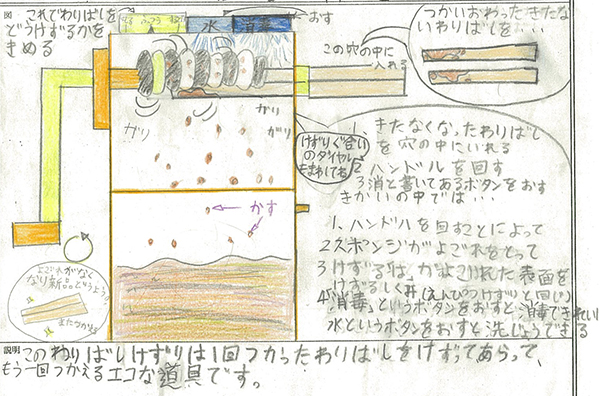 図 これでわりばしを
どうけずるかを
きめる
水
消毒
おす
この穴の中に
入れる
つかいおわったきたな
いわりばしを・・・
ガリ
ガリ
ガリ
けずりぐ合い
のダイヤル
もまわしてね
かす
1、きたなくなったわりばし
を穴の中にいれる
2 ハンドルを回す
3 消と書いてあるボタンをおす
きかいの中では・・・
1、ハンドルを回すことによって
2 スポンジがよごれをとって
3 けずる羽がよごれた表面を
けずるしくみ(えんぴつけずりと同じ)
4「消毒」というボタンをおすと消毒できれい
水というボタンをおすと洗じょうできる
よごれがなく
なり新品どうように
またつかえる
説明 このわりばしけずりは1回つかったわりばしをけずってあらって、
もう一回つかえるエコな道具です。